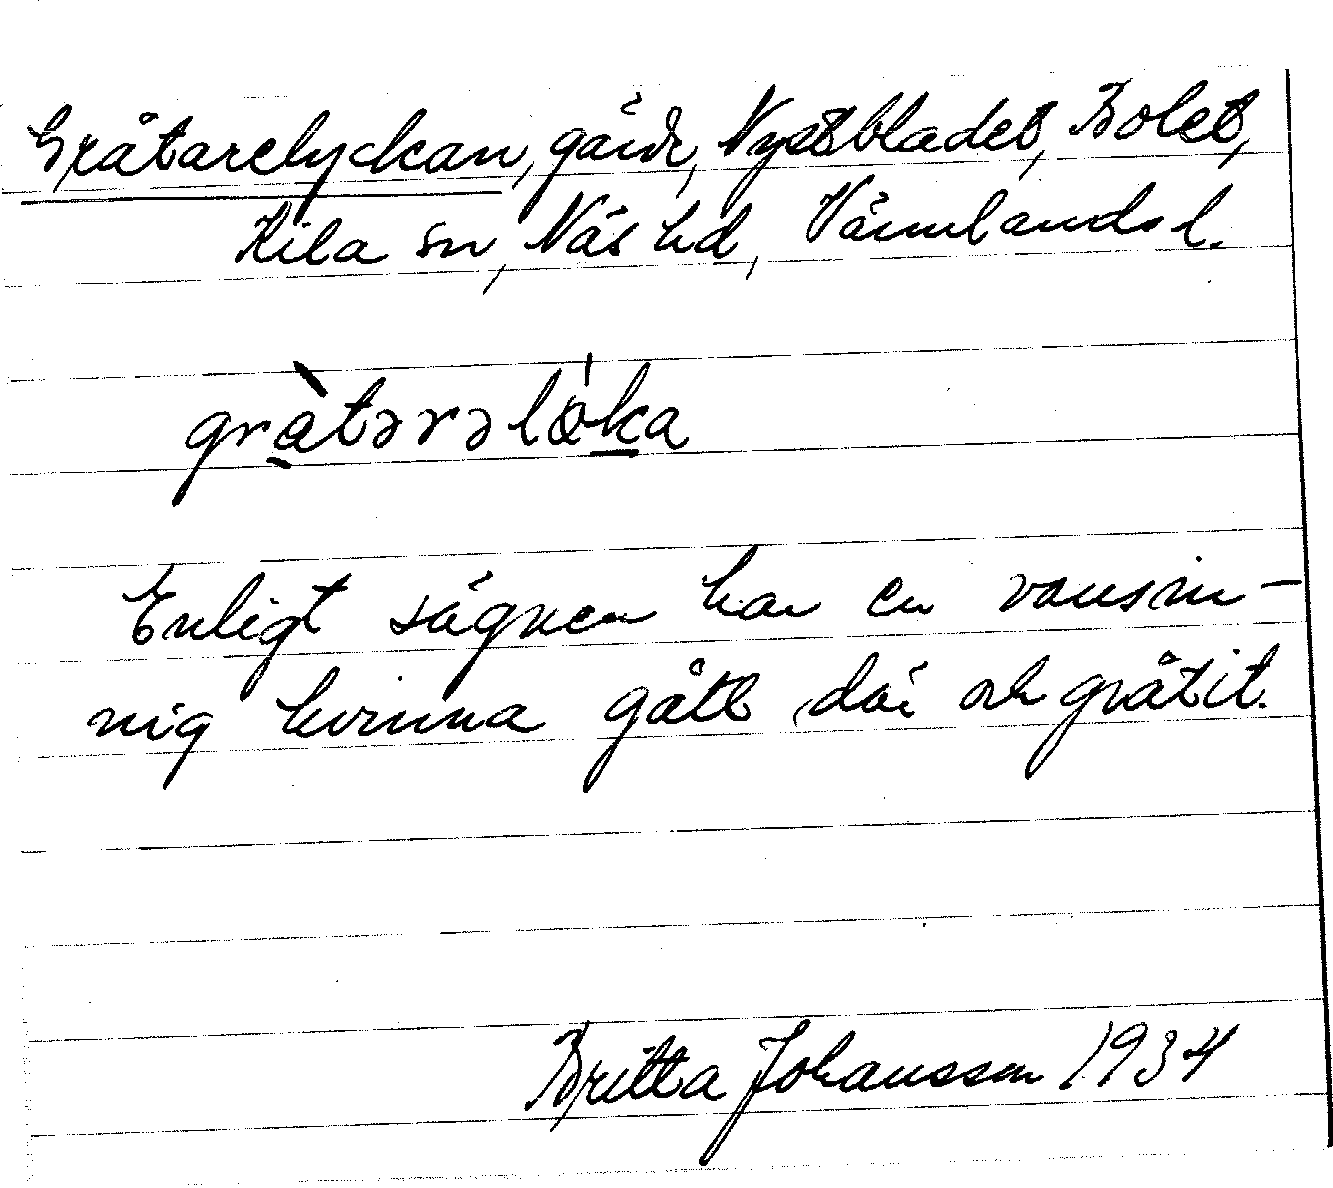 Gråtarelyckan, gärde, Nystbladet, Bolet,
Kila sn, Näs hd, Värmlands l.
gràtərəlöka
Enligt sägnen har en vansin-
nig kvinna gått där och gråtit.
Britta Johansson 1934